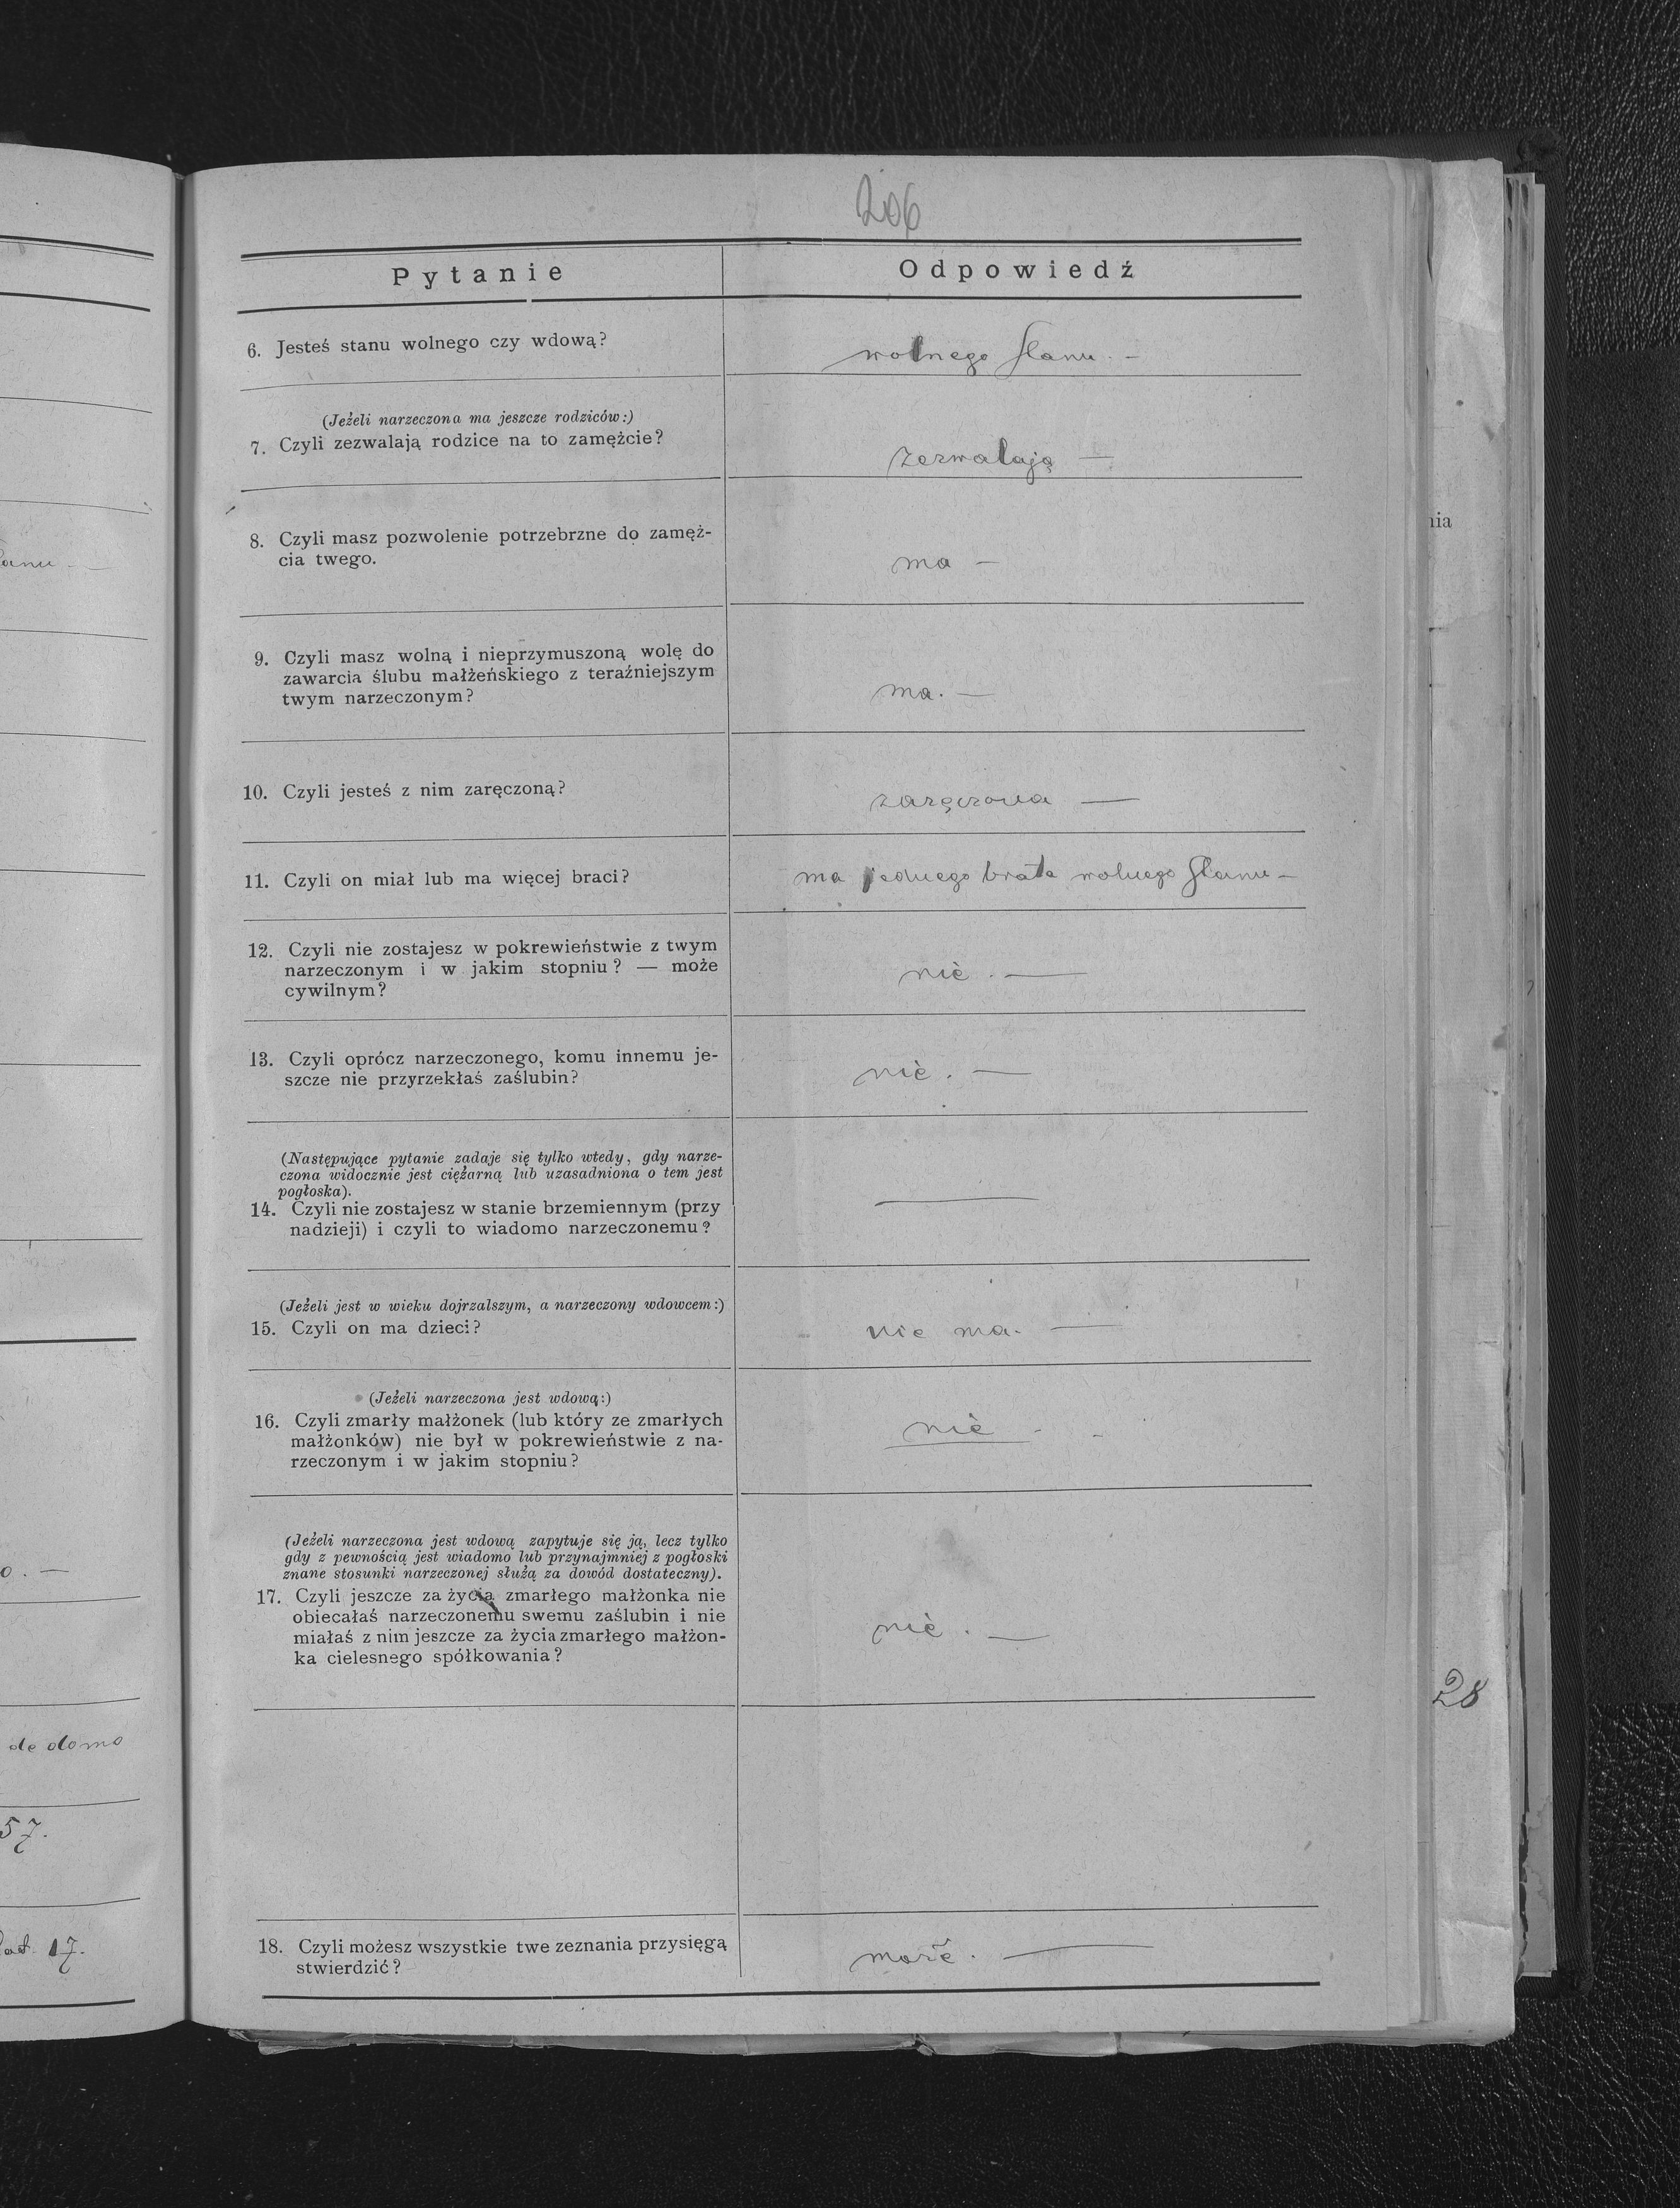 206
Pytanie
Odpowiedź
6. Jesteś stanu wolnego czy wdową?
wolnego stanu. —
(Jeżeli narzeczona ma jeszcze rodziców:)
7. Czyli zezwalają rodzice na to zamęźcie?
zezwalają —
8. Czyli masz pozwolenie potrzebrzne do zamęż-
cia twego.
ma —
9. Czyli masz wolną i nieprzymuszoną wolę do
zawarcia ślubu małżeńskiego z teraźniejszym
twym narzeczonym?
ma. —
10. Czyli jesteś z nim zaręczoną?
zaręczona —
11. Czyli on miał lub ma więcej braci?
ma jednego brata wolnego stanu —
12. Czyli nie zostajesz w pokrewieństwie z twym
narzeczonym i w jakim stopniu? — może
cywilnym?
nie. —
13. Czyli oprócz narzeczonego, komu innemu je-
szcze nie przyrzekłaś zaślubin?
nie. —
(Następujące pytanie zadaje się tylko wtedy, gdy narze-
czona widocznie jest ciężarną lub uzasadniona o tem jest
pogłoska).
14. Czyli nie zostajesz w stanie brzemiennym (przy
nadzieji) i czyli to wiadomo narzeczonemu?
—
(Jeżeli jest w wieku dojrzalszym, a narzeczony wdowcem:)
15. Czyli on ma dzieci?
nie ma. —
(Jeżeli narzeczona jest wdową:)
16. Czyli zmarły małżonek (lub który ze zmarłych
małżonków) nie był w pokrewieństwie z na-
rzeczonym i w jakim stopniu?
nie - -
(Jeżeli narzeczona jest wdową zapytuje się ją, lecz tylko
gdy z pewnością jest wiadomo lub przynajmniej z pogłoski
znane stosunki narzeczonej służą za dowód dostateczny).
17. Czyli jeszcze za życia zmarłego małżonka nie
obiecałaś narzeczonemu swemu zaślubin i nie
miałaś z nim jeszcze za życia zmarłego małżon-
ka cielesnego spółkowania?
nie. —
18. Czyli możesz wszystkie twe zeznania przysięgą
stwierdzić?
może. —
de domo
57.
17.
28